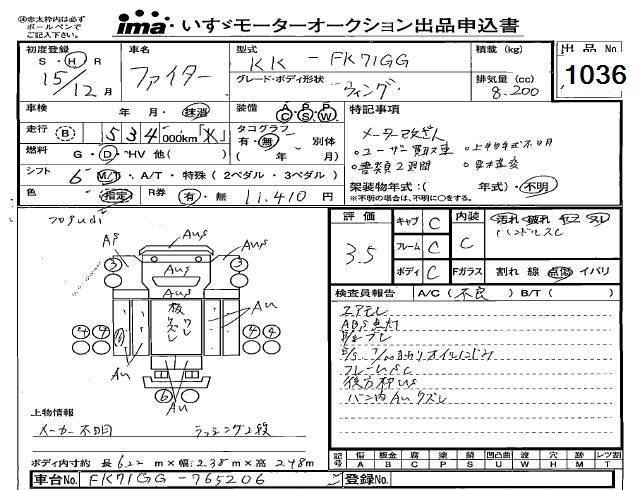 ④赤太枠内は必ず
ボールペンで
ご記入下さい。
ima いすゞモーターオークション出品申込書
初度登録 車名 型式 積載 (kg) 出品No.
S・H・R ファイター KK - FK71GG 1036
15/12月 グレード・ボディ形状 ウィング 排気量 (cc) 8.200
車検 年 月・抹消 装備 A P P C S W 特記事項
走行 B 534 000km 「水」 タコグラフ 有・無 別体 メーター改ざん
燃料 G・D・HV 他( ) ( 年 月) 。ユーザー買取車 。上物年式不明
シフト 6 M/T・A/T・特殊 (2ペダル・3ペダル) 。書類2週間
色 指定 R券 有・無 11.410 円 架装物年式:( 年式)・不明
※不明の場合は、不明に○をする。
評価 キャブ C 内装 汚れ 破れ コゲ スレ
3.5 フレーム C C ハンドルスレ
ボディ C Fガラス 割れ 線 点傷 イバリ
検査員報告 A/C (不良) B/T ( )
エアモレ
ABS点灯
フレームSC
バン内AUクズレ
AS AUS
3 AUS 3
板 クズレ
AU
4 4 4 4
AU AU
6 AU
上物情報
メーカー不明 ラッシング2段
ボディ内寸約 長 6.22 m×幅:2.38 m×高 2.48 m
記号 傷 板金 腐 塗 錆 凹凸曲 波 穴 跡 レツ割
A B C P S U W H M T
車台No. FK71GG-765206 登録No.